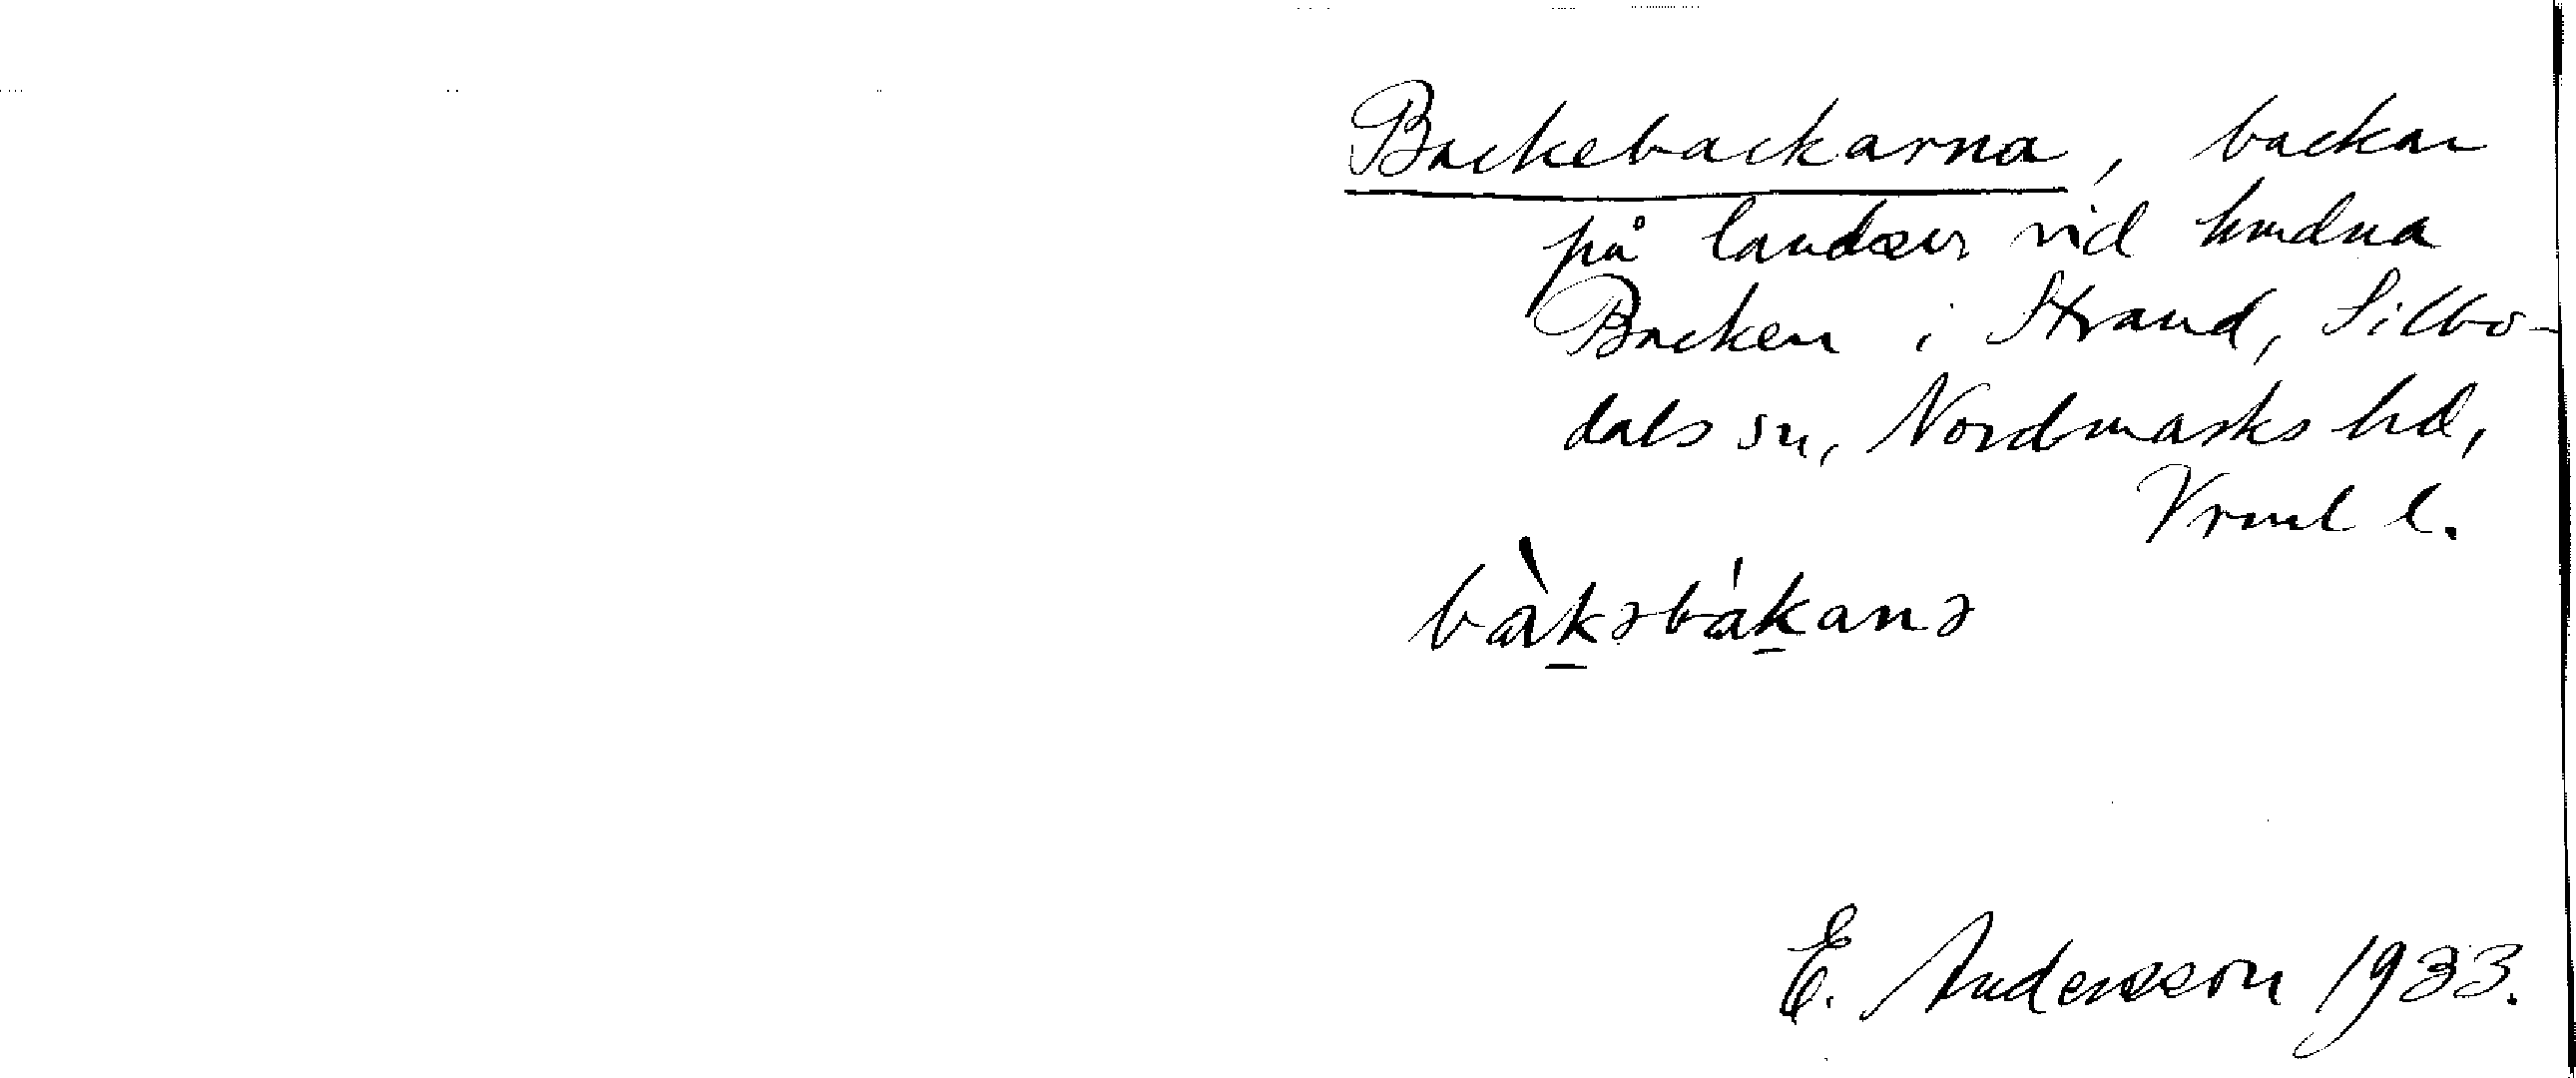 Backebackarna, backar
på landsv vid hmdna
Backen i Strand, Silbo-
dals sn, Nordmarks hd,
Vrml l.
bàkəbákanə
E. Andersson 1933.